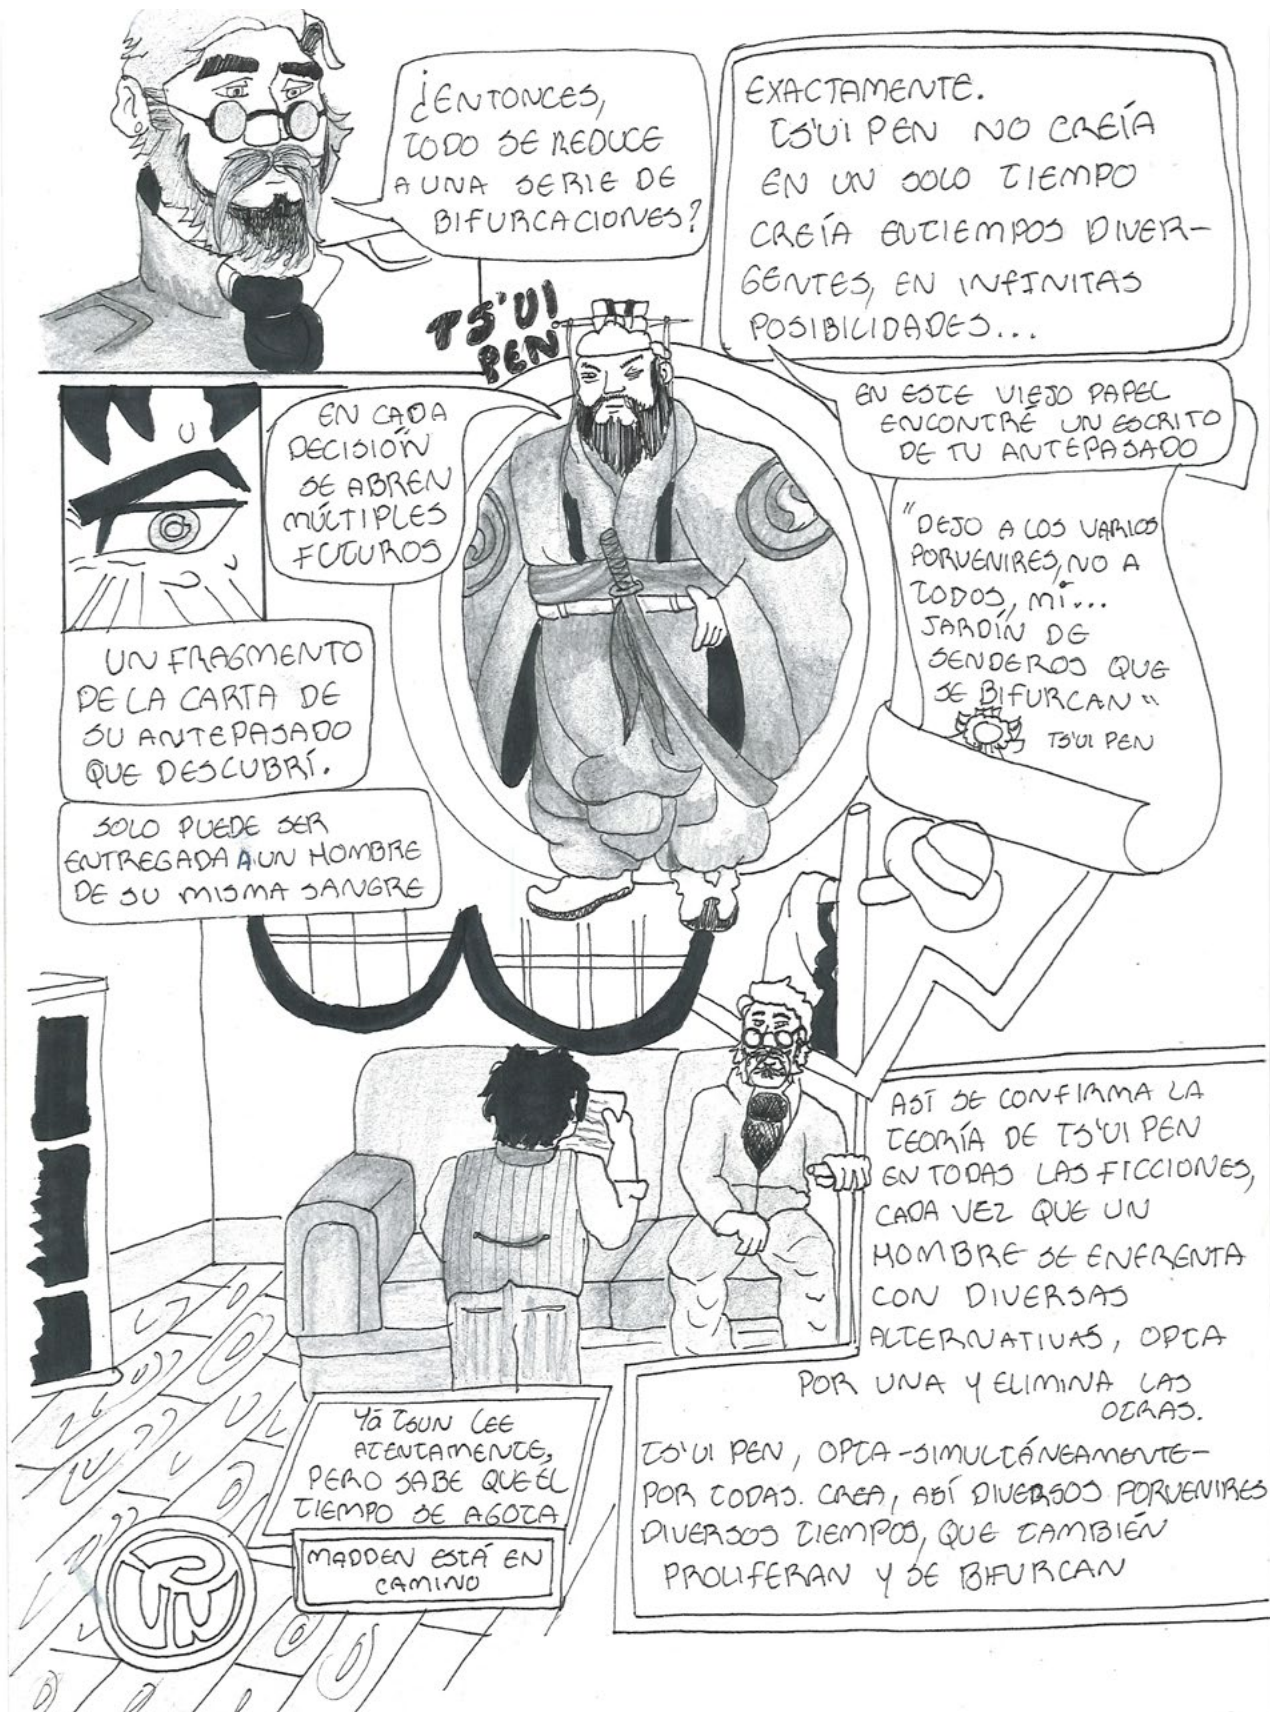 ¿ENTONCES,
TODO SE REDUCE
A UNA SERIE DE
BIFURCACIONES?
EXACTAMENTE.
TS'UI PEN NO CREÍA
EN UN SOLO TIEMPO
CREÍA EN TIEMPOS DIVER-
GENTES, EN INFINITAS
POSIBILIDADES...
TS'UI
PEN
EN ESTE VIEJO PAPEL
ENCONTRÉ UN ESCRITO
DE TU ANTEPASADO
EN CADA
DECISIÓN
SE ABREN
MÚLTIPLES
FUTUROS
"DEJO A LOS VARIOS
PORVENIRES, NO A
TODOS, MÍ...
JARDÍN DE
SENDEROS QUE
SE BIFURCAN"
TS'UI PEN
UN FRAGMENTO
DE LA CARTA DE
SU ANTEPASADO
QUE DESCUBRÍ.
SOLO PUEDE SER
ENTREGADA A UN HOMBRE
DE SU MISMA SANGRE
ASÍ SE CONFIRMA LA
TEORÍA DE TS'UI PEN
EN TODAS LAS FICCIONES,
CADA VEZ QUE UN
HOMBRE SE ENFRENTA
CON DIVERSAS
ALTERNATIVAS, OPTA
POR UNA Y ELIMINA LAS
OTRAS.
TS'UI PEN, OPTA -SIMULTÁNEAMENTE-
POR TODAS. CREA, ASÍ DIVERSOS PORVENIRES
DIVERSOS TIEMPOS, QUE TAMBIÉN
PROLIFERAN Y SE BIFURCAN
Yá TSUN LEE
ATENTAMENTE,
PERO SABE QUE EL
TIEMPO SE AGOTA
MADDEN ESTÁ EN
CAMINO